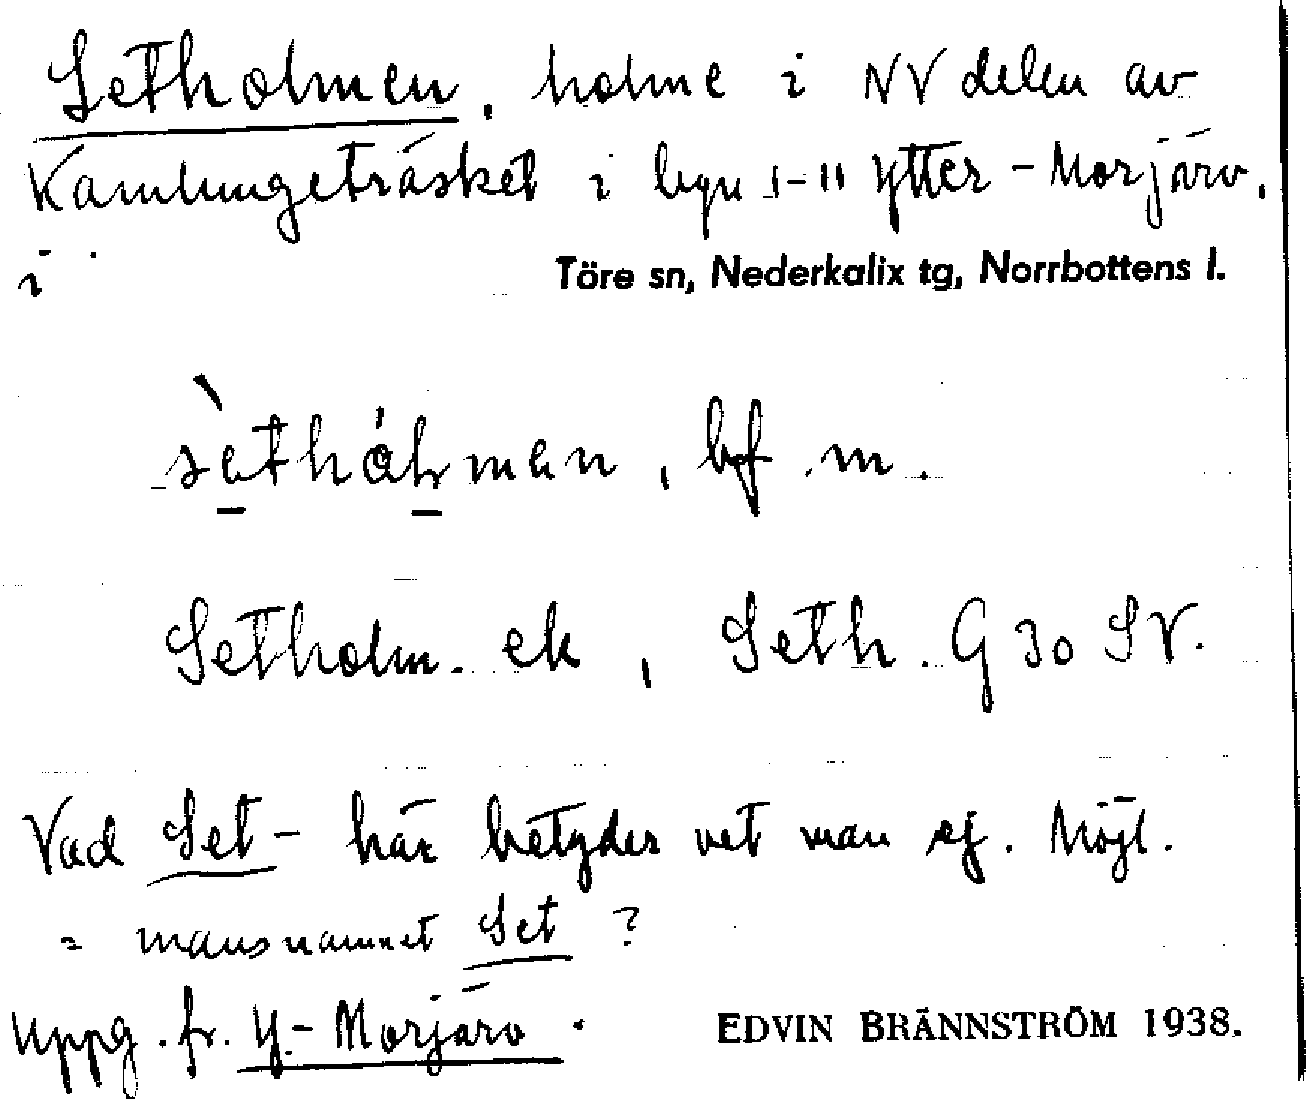 Setholmen, holme i NV delen av
Kamlungeträsket i byn 1-11 Ytter-Morjärv,
i
Töre sn, Nederkalix tg, Norrbottens l.
sèthólmen, bf m.
Setholm. ek, Seth. G 30 SV.
Vad Set- här betyder vet man ej. Möjl.
= mansnamnet Set ?
Uppg. fr. Y.-Morjärv.
EDVIN BRÄNNSTRÖM 1938.